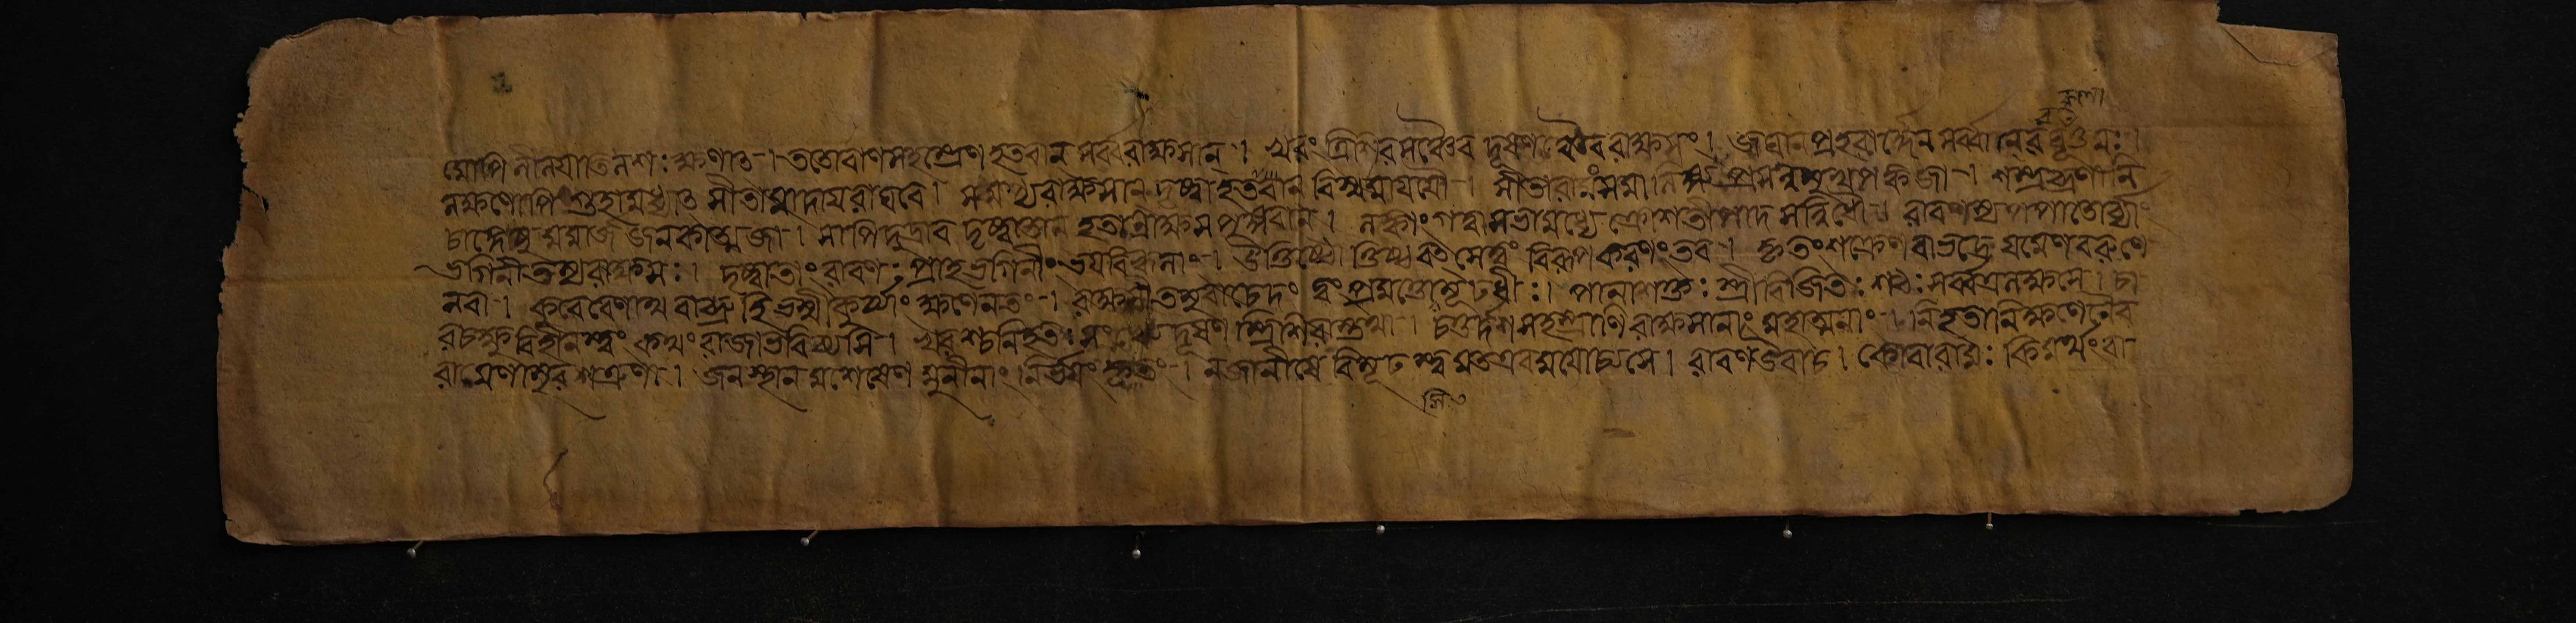 রামোপি নীলয়া তিলশঃ ক্ষণাৎ । ততোবাণসহস্রেণ হতবান সর্ব্বরাক্ষসান্ । খরং ত্রিশিরসঞ্চৈব দূষণঞ্চৈব রাক্ষসং । জঘান প্রহরার্দ্ধেন সর্ব্বানেব রঘূত্তমঃ ।
লক্ষণোপি গুহামধ্যাৎ সীতামাদায় রাঘবে । সমর্প্য রাক্ষসান্ দৃষ্ট্বা হতান বিস্ময়মাযযৌ । সীতা রামং সমালিঙ্গ্য প্রসন্নমুখপঙ্কজা । শস্ত্রব্রণানি
চাঙ্গেষু মমার্জ জনকাত্মজা । সাপি দুদ্রাব দৃষ্ট্বা তান হতান্রাক্ষসপুঙ্গবান । লঙ্কাং গত্বা সভামধ্যে ক্রোশতী পাদসন্নিধৌ । রাবণস্য পপাতোর্ব্ব্যাং
ভগিনী তস্য রাক্ষসঃ । দৃষ্ট্বা তাং রাবণঃ প্রাহ ভগিনীং ভয়বিহ্বলাং । উত্তিষ্ঠোত্তিষ্ঠ বৎসে ত্বং বিরূপকরণং তব । কৃতং শক্রেণ বা ভদ্রে যমেণ বরুণে
নবা । কুবেরেণাথ বা ব্রূহি ভস্মীকুর্য্যাং ক্ষণেন তং । রাক্ষসী তমুবাচেদং ত্বং প্রমত্তো মূঢধীঃ । পানাশক্তঃ স্ত্রীবিজিতঃ শণ্ঢঃ সর্ব্বত্র লক্ষসে । চা
রচক্ষুবিহীনস্ত্বং কথং রাজা ভবিষ্যসি । খরশ্চ নিহতঃ সংখ্যে দূষণ স্ত্রিশিরাস্তথা । চতুর্দশসহস্রাণি রাক্ষসানাং মহাত্মনাং । নিহতানি ক্ষণেনৈব
রামেণাসুরশত্রুণা । জনস্থানমশেষেণ মুনীনাং নির্ভয়ং কৃতং । ন জানীষে বিমূঢ স্ত্বমতএব ময়োচ্যসে । রাবণউবাচ । কোবা রামঃ কিমর্থং বা